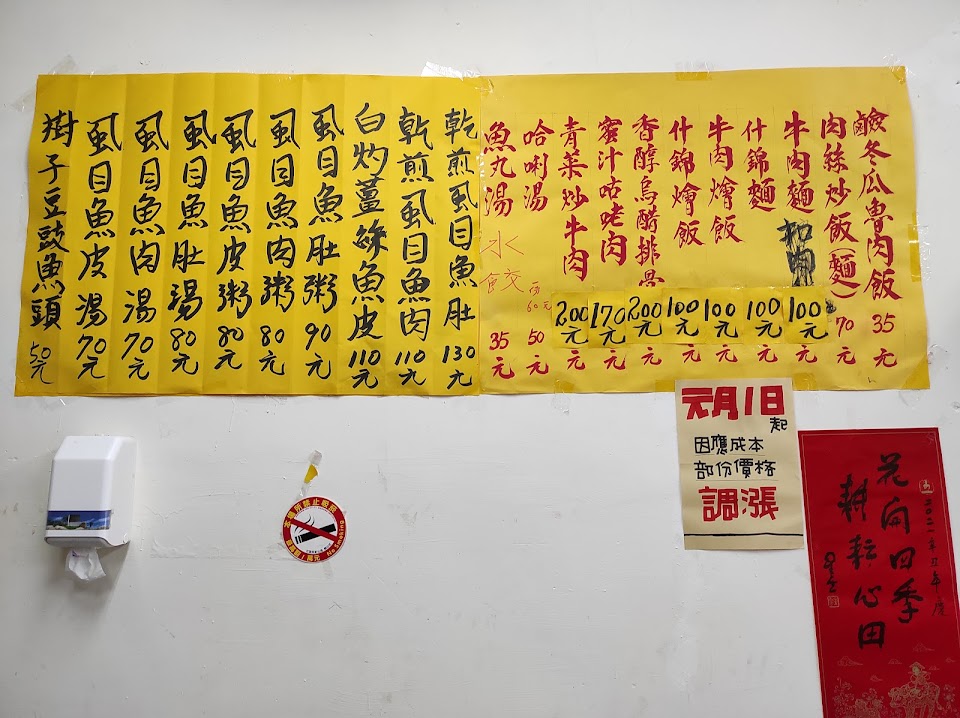 鹼冬瓜魯肉飯 35元
肉絲炒飯(麵) 70元
牛肉麵 100元
什錦麵 100元
牛肉燴飯 100元
什錦燴飯 100元
香醇烏醋排骨 200元
蜜汁咕咾肉 170元
青菜炒牛肉 200元
哈唎湯 50元
魚丸湯 35元
水餃 60元
乾煎虱目魚肚 130元
乾煎虱目魚肉 110元
白灼薑絲魚皮 110元
虱目魚肚粥 90元
虱目魚肉粥 80元
虱目魚皮粥 80元
虱目魚肚湯 80元
虱目魚肉湯 70元
虱目魚皮湯 70元
樹子豆豉魚頭 50元
元月1日起
因應成本
部份價格
調漲
花開四季
耕耘心田
No Smoking